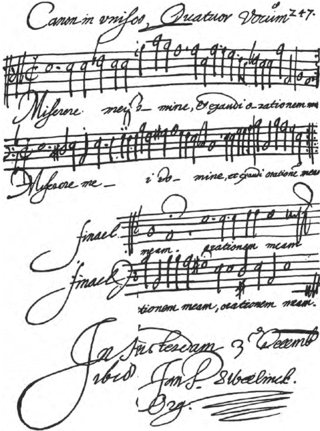 Canon in unisos, Quatuor Vocim 247.
Miserere mei do- mine, et exaudi orationem m
Miserere me- i do- mine, et exaudi orationem meam
finael
meam. orationem meam
finael
tionem meam, orationem meam.
Decemb
Jan P. Swelinck.
Org.